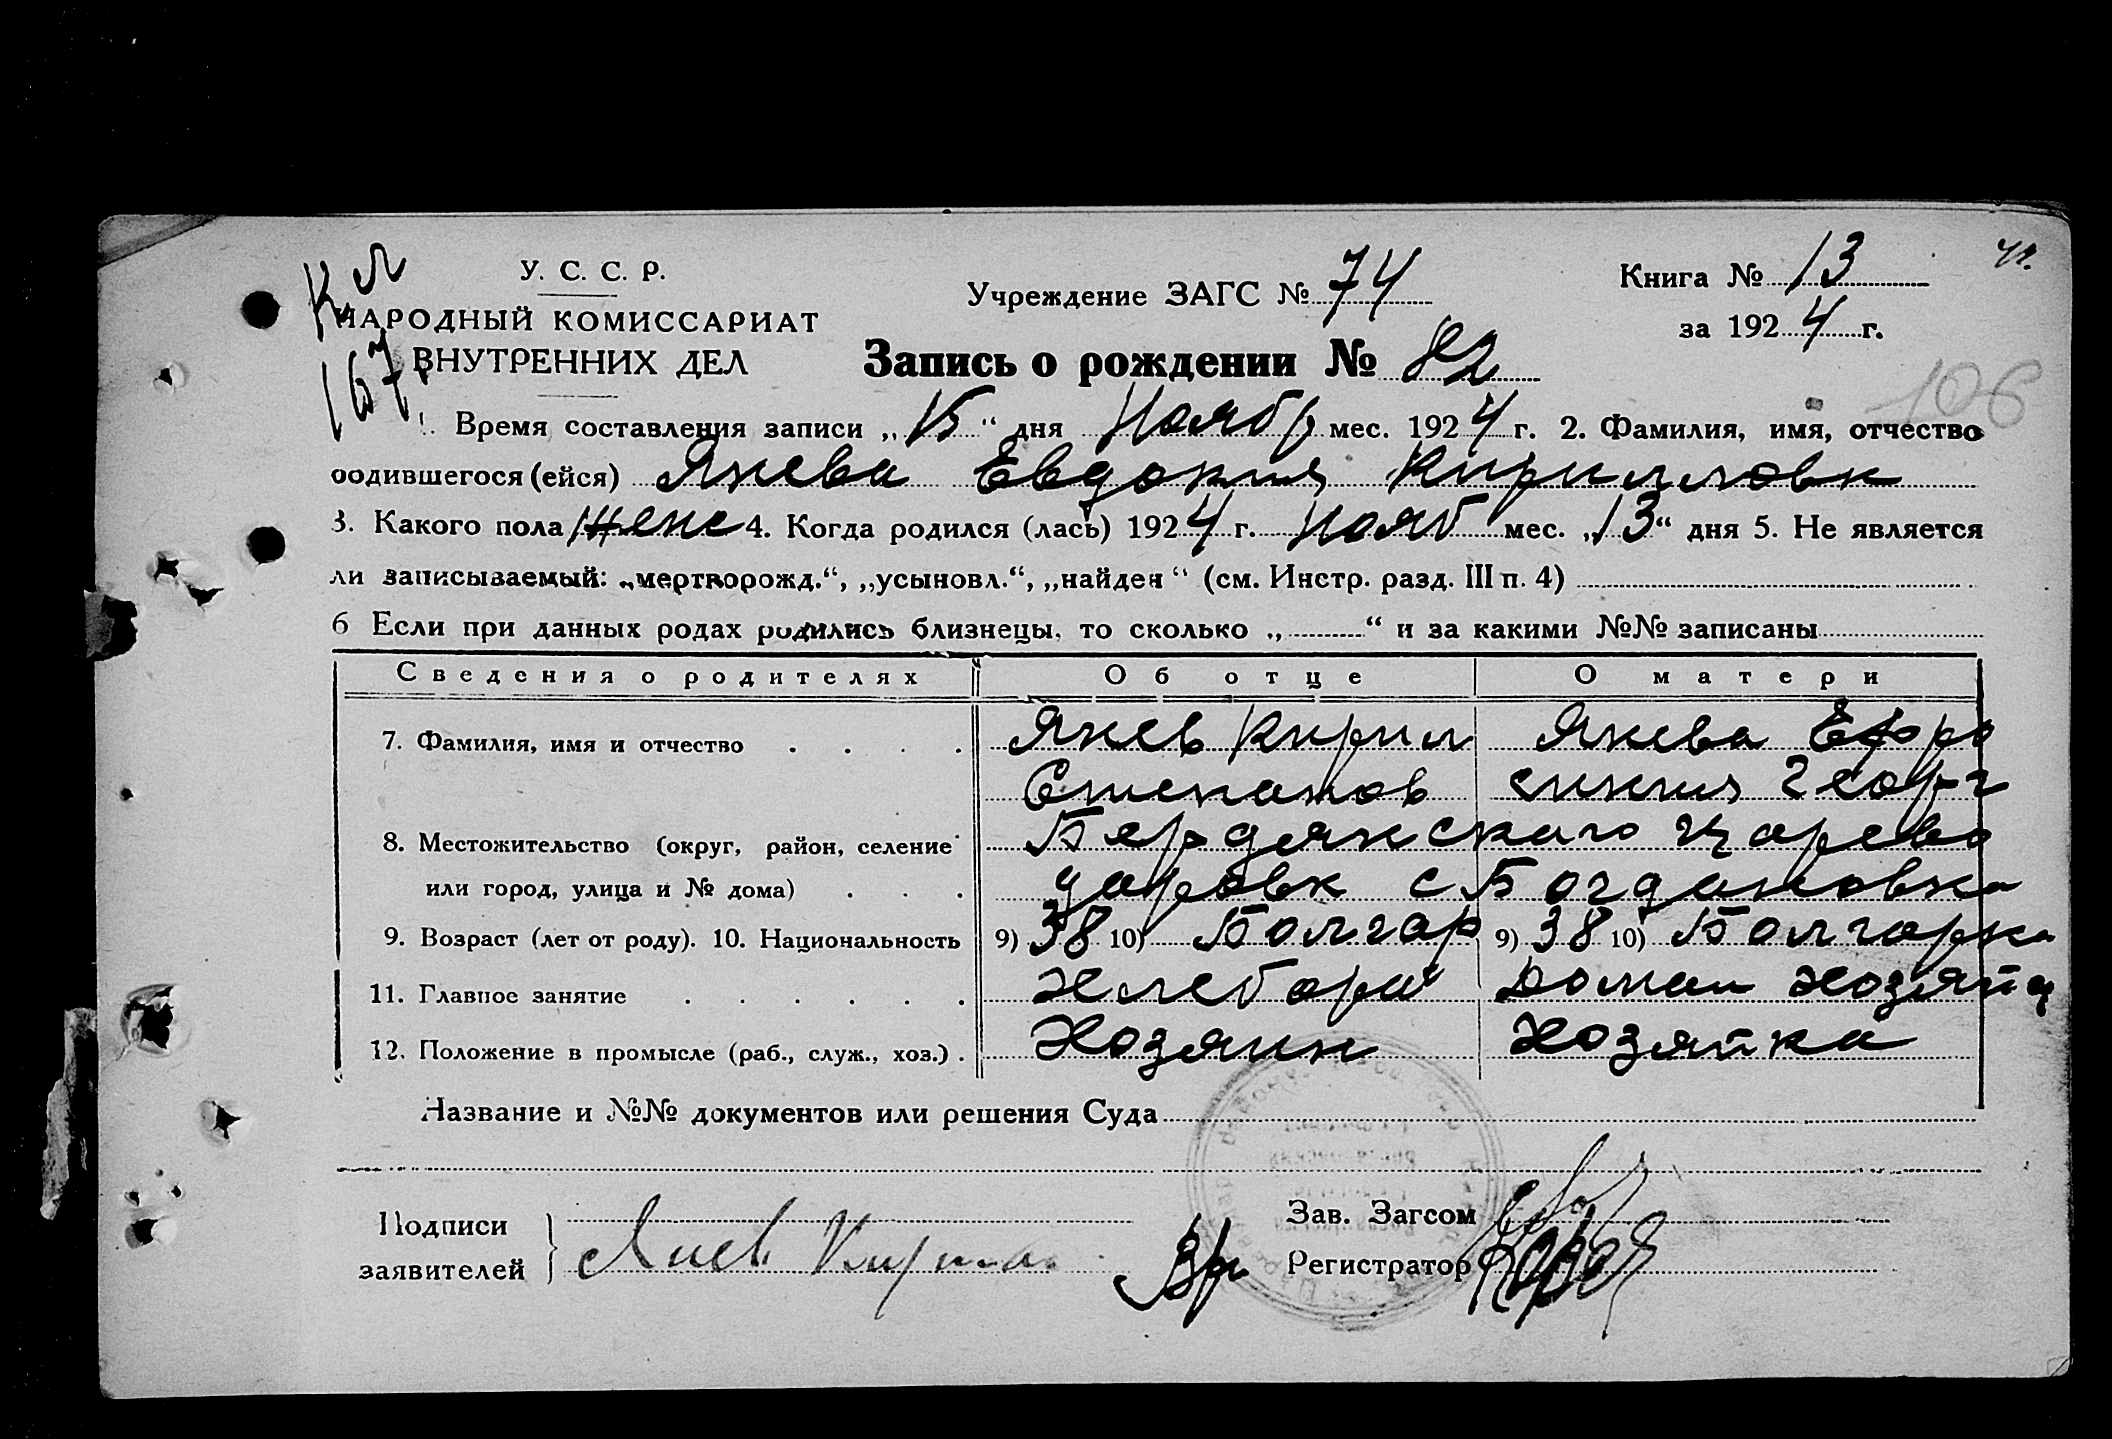 У. С. С. Р.
НАРОДНЫЙ КОМИССАРИАТ
ВНУТРЕННИХ ДЕЛ
167
Учреждение ЗАГС № 74
Книга № 13
за 1924 г.
Запись о рождении № 82
106
1. Время составления записи „15“ дня Ноябр мес. 1924 г. 2. Фамилия, имя, отчество
родившегося (ейся) Янева Евдокия Кирилловн
3. Какого пола женс 4. Когда родился (лась) 1924 г. Нояб мес. „13“ дня 5. Не является
ли записываемый: „мертворожд.“, „усыновл.“, „найден“ (см. Инстр. разд. III п. 4)
6 Если при данных родах родились близнецы, то сколько „ “ и за какими №№ записаны
Сведения о родителях Об отце О матери
7. Фамилия, имя и отчество Янев Кирил Янева Ефро
Степанов синия Георг
8. Местожительство (округ, район, селение Бердянскаго Царево
или город, улица и № дома) даровк с Богдановка
9. Возраст (лет от роду). 10. Национальность 9) 38 10) Болгар 9) 38 10) Болгарка
11. Главное занятие Хлебороб Домаш хозяйка
12. Положение в промысле (раб., служ., хоз.) Хозяин Хозяйка
Название и №№ документов или решения Суда
Подписи
заявителей Янев Кирил
Зав. Загсом
Вр Регистратор